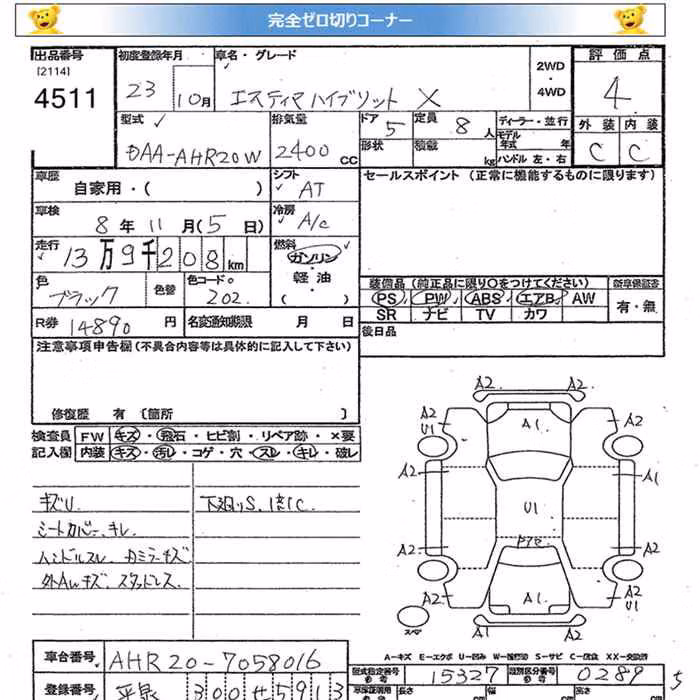 完全ゼロ切りコーナー
出品番号
[2114]
4511
初度登録年月
23 10月
車名・グレード
エスティマハイブリット X
2WD
・
4WD
評価点
4
型式
DAA-AHR20W
排気量
2400 CC
ドア 5
形状
定員 8 人
積載 kg
ディーラー・並行
モデル
年式 年
ハンドル 左・右
外装 内装
C C
車歴
自家用・( )
シフト
AT
セールスポイント (正常に機能するものに限ります)
車検
8年 11月(5日)
冷房
A/C
走行
13万9千208km
燃料
ガソリン
軽油
( )
色
ブラック
色替
色コード。
202
装備品 (純正品に限り○をつけてください)
PS PW ABS エアB AW
SR ナビ TV カワ
新車保証書
有・無
R券 14890 円
名変通知期限 月 日
後日品
注意事項申告欄(不具合内容等は具体的に記入して下さい)
修復歴 有 [箇所 ]
検査員
記入欄
FW キズ・飛石・ヒビ割・リペア跡・×要
内装 キズ・汚れ・コゲ・穴・スレ・キレ・破レ
キズU
下廻りS、
シートカバー、キレ
ハンドルスレ
外AWキズ スタッドレス
A2 A2
A2 U1 A1 A2
A2 A1
U1
A2 A2
A2 A1 A2 U1
スペア
A-キズ E-エクボ U-凹み W-補修跡 S-サビ C-腐食 XX-交換済
車台番号 AHR20-7058016
型式指定番号 15327 類別区分番号 0289
登録番号 300 せ 5913
長さ 幅 高さ